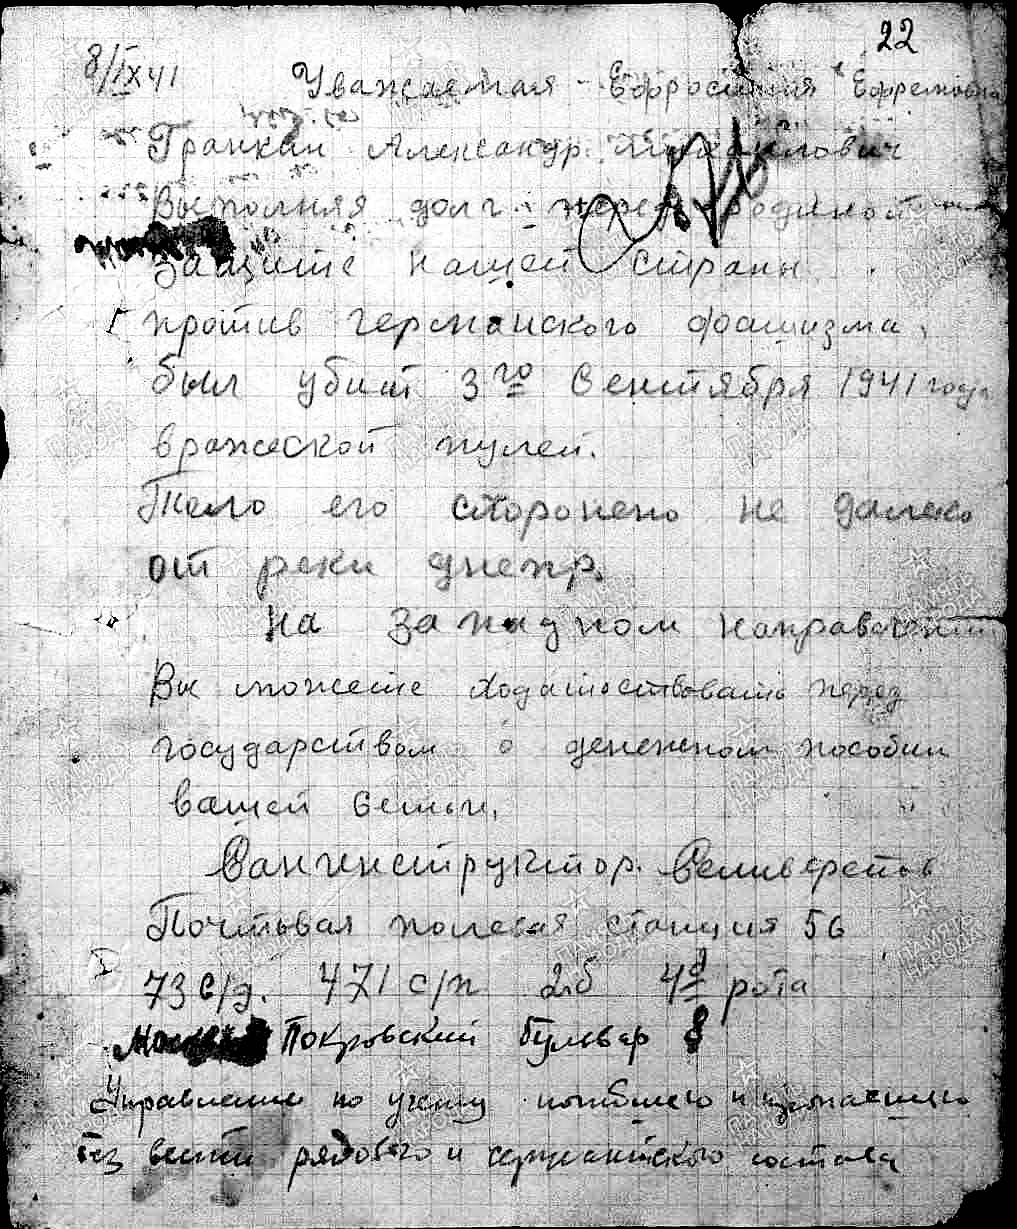 22
8/IX 41
Уважаемая Ефросиния Ефремовна
Гранкин Александр Михайлович
Выполняя долг перед родиной
защите нашей страны
против германского фашизма,
был убит 3го Сентября 1941 года
вражеской пулей.
Тело его схоронено не далеко
от реки днепр.
на западном направлении
Вы можете ходатоствовать перед
государством о денежном пособии
вашей семьи.
Санинструктор. Селиверстов
Почтовая полевая станция 56
73 с/д. 471 с/п 2.б 4я рота
Москва Покровский бульвар 8
Управление по учету погибшего и пропавшего
без вести рядового и сержантского состава